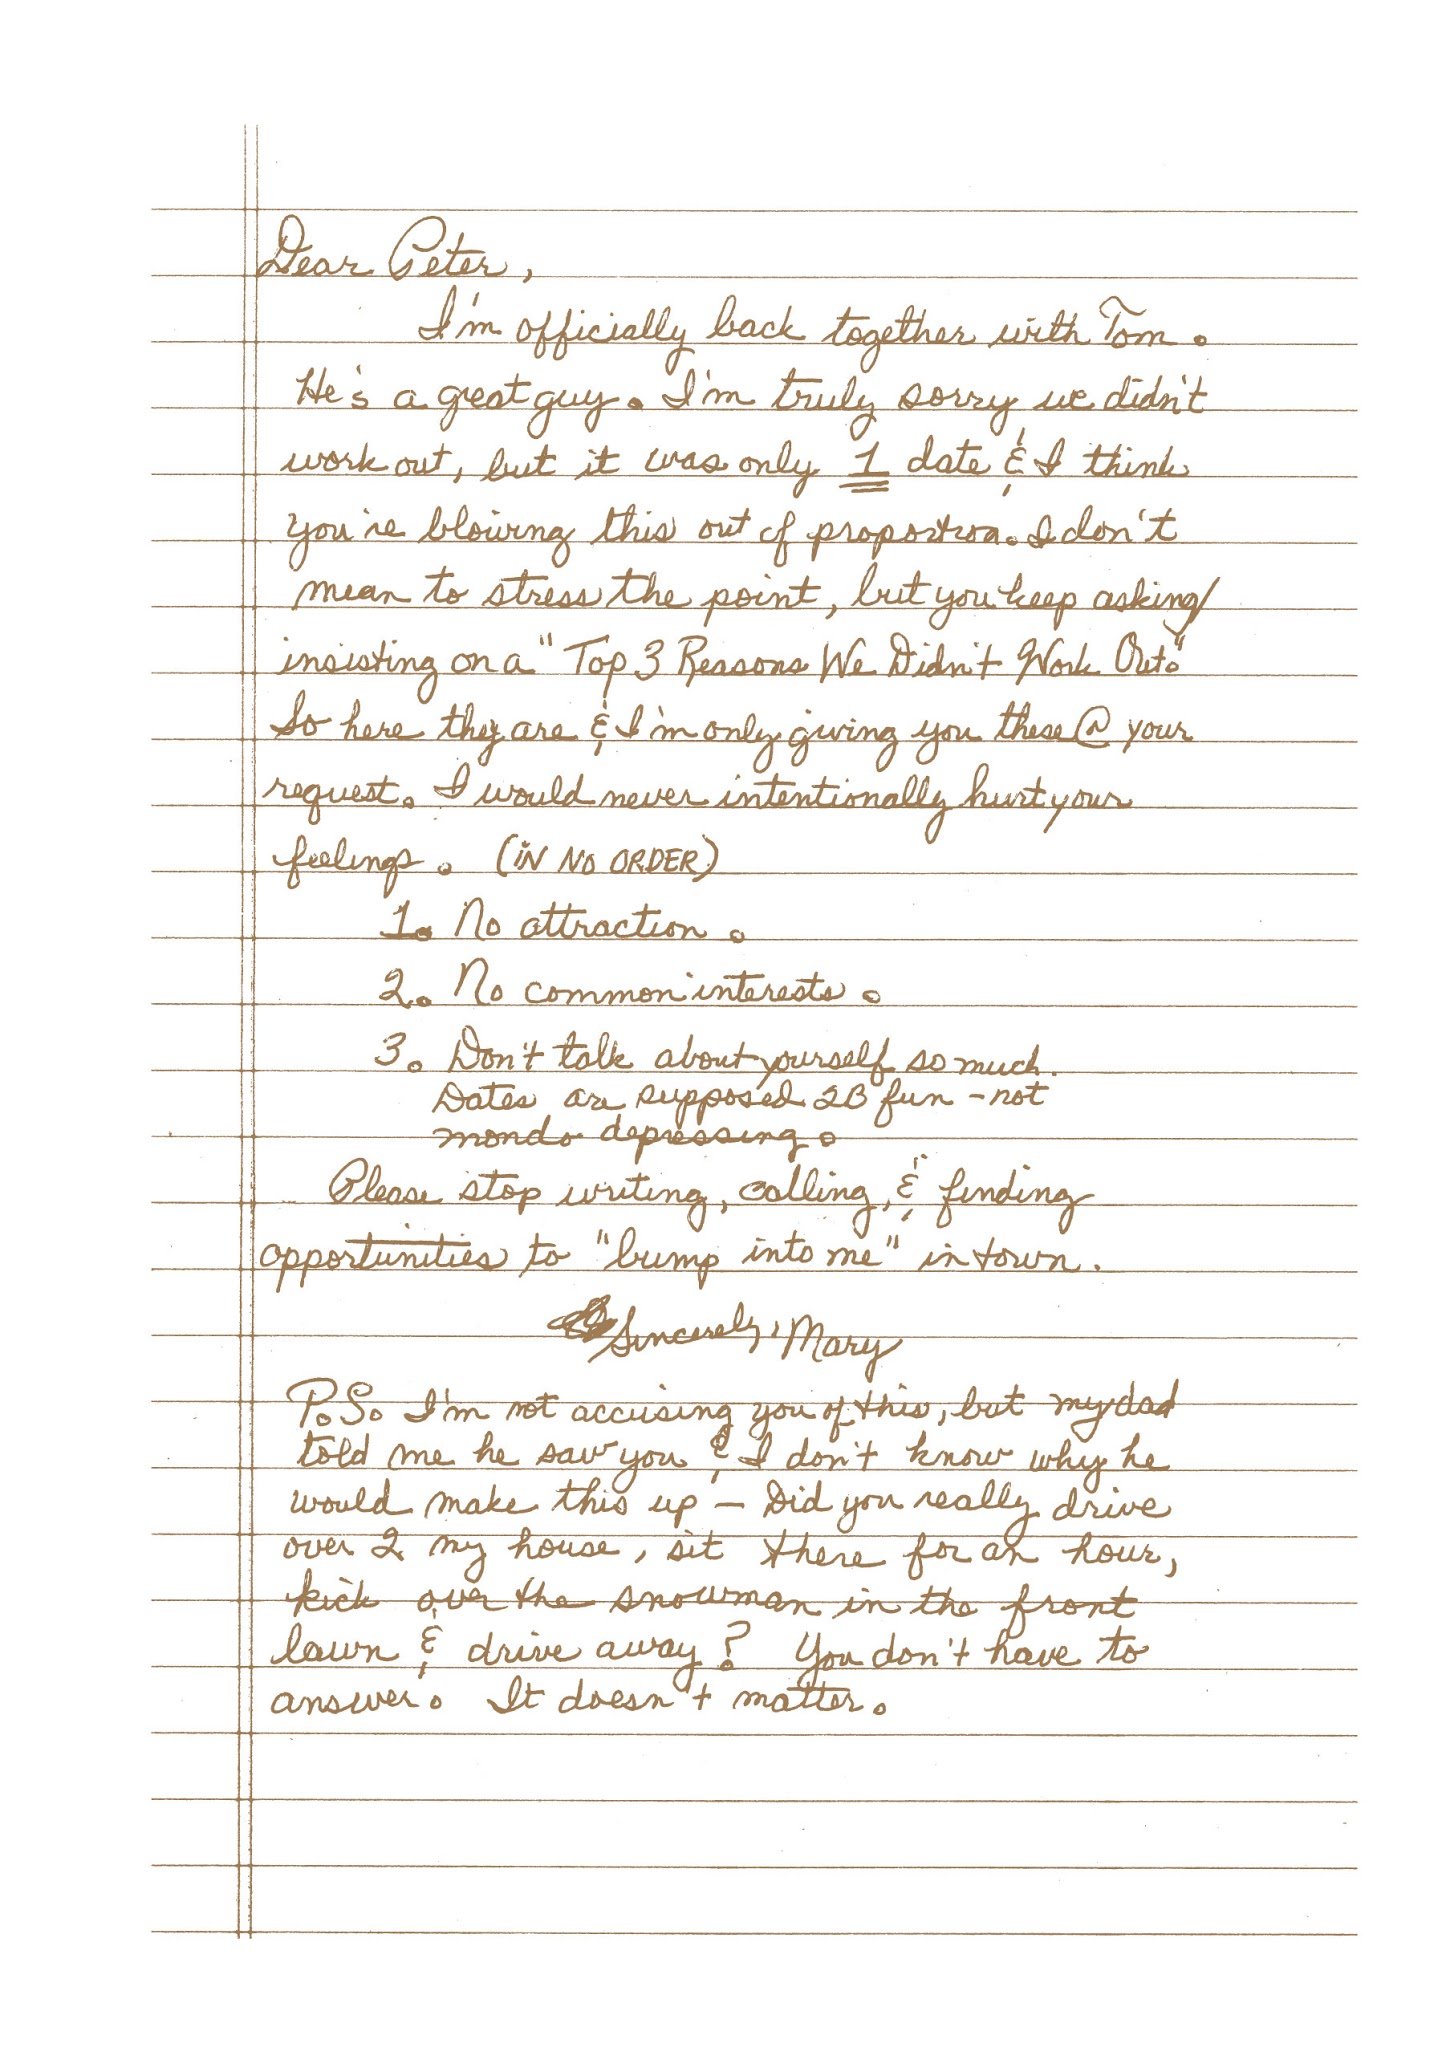 Dear Peter,
I'm officially back together with Tom.
He's a great guy. I'm truly sorry we didn't
work out, but it was only 1 date & I think
you're blowing this out of proportion. I don't
mean to stress the point, but you keep asking/
insisting on a "Top 3 Reasons We Didn't Work Out."
So here they are & I'm only giving you these @ your
request. I would never intentionally hurt your
feelings. (IN NO ORDER)
1. No attraction.
2. No common interests.
3. Don't talk about yourself so much.
Dates are supposed 2B fun - not
mondo depressing.
Please stop writing, calling, & finding
opportunities to "bump into me" in town.
Sincerely, Mary
P.S. I'm not accusing you of this, but my dad
told me he saw you & I don't know why he
would make this up - Did you really drive
over 2 my house, sit there for an hour,
kick over the snowman in the front
lawn & drive away? You don't have to
answer. It doesn't matter.